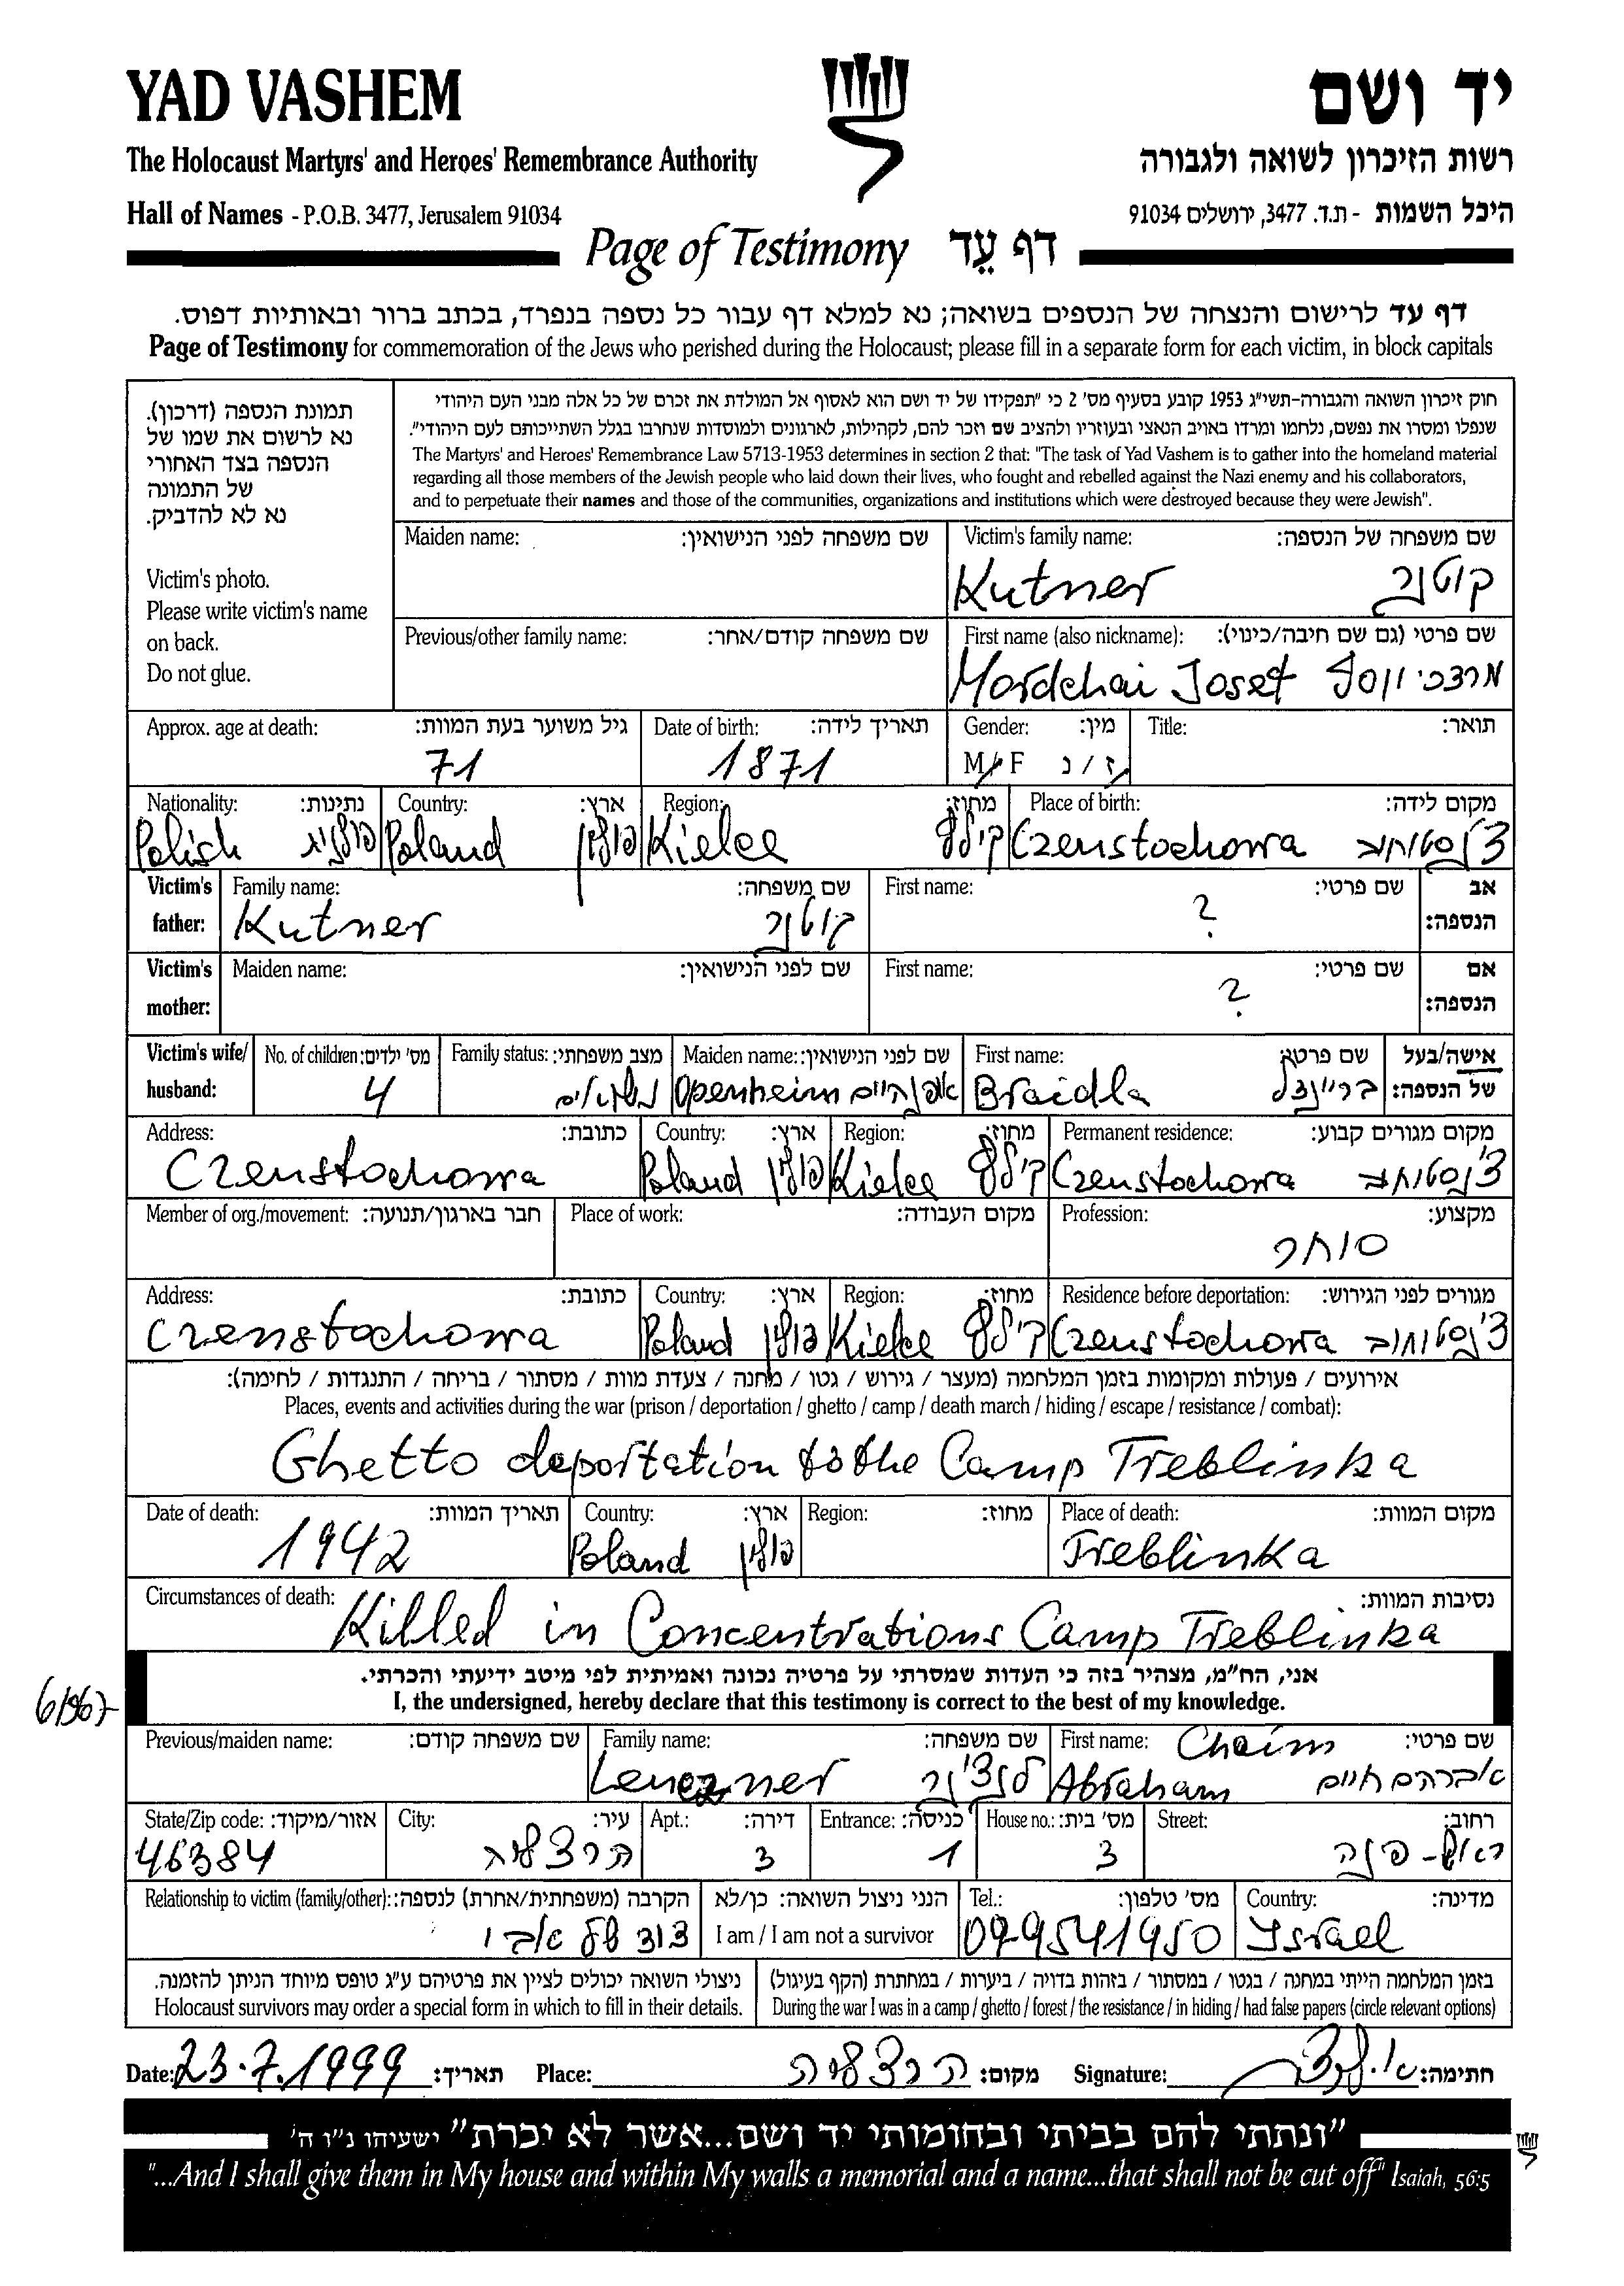 YAD VASHEM יד ושם
The Holocaust Martyrs' and Heroes' Remembrance Authority רשות הזיכרון לשואה ולגבורה
Hall of Names - P.O.B. 3477, Jerusalem 91034 היכל השמות - ת.ד. 3477, ירושלים 91034
Page of Testimony דף עֵד
דף עד לרישום והנצחה של הנספים בשואה; נא למלא דף עבור כל נספה בנפרד, בכתב ברור ובאותיות דפוס.
Page of Testimony for commemoration of the Jews who perished during the Holocaust; please fill in a separate form for each victim, in block capitals
תמונת הנספה (דרכון).
נא לרשום את שמו של
הנספה בצד האחורי
של התמונה
נא לא להדביק.
Victim's photo.
Please write victim's name
on back.
Do not glue.
חוק זיכרון השואה והגבורה-תשי"ג 1953 קובע בסעיף מס' 2 כי "תפקידו של יד ושם הוא לאסוף אל המולדת את זכרם של כל אלה מבני העם היהודי
שנפלו ומסרו את נפשם, נלחמו ומרדו באויב הנאצי ובעוזריו ולהציב שם וזכר להם, לקהילות, לארגונים ולמוסדות שנחרבו בגלל השתייכותם לעם היהודי".
The Martyrs' and Heroes' Remembrance Law 5713-1953 determines in section 2 that: "The task of Yad Vashem is to gather into the homeland material
regarding all those members of the Jewish people who laid down their lives, who fought and rebelled against the Nazi enemy and his collaborators,
and to perpetuate their names and those of the communities, organizations and institutions which were destroyed because they were Jewish".
Maiden name: שם משפחה לפני הנישואין: Victim's family name: שם משפחה של הנספה:
Kutner קוטנר
Previous/other family name: שם משפחה קודם/אחר: First name (also nickname): שם פרטי (גם שם חיבה/כינוי):
Mordchai Josef מרדכי יוסף
Approx. age at death: גיל משוער בעת המוות: Date of birth: תאריך לידה: Gender: מין: Title: תואר:
71 1871 M/F ז/נ
Nationality: נתינות: Country: ארץ: Region: מחוז: Place of birth: מקום לידה:
Polish פולנית Poland פולין Kielce קילץ Czenstochowa צ'נסטוחוב
Victim's father: Family name: שם משפחה: First name: שם פרטי: אב הנספה:
Kutner קוטנר ?
Victim's mother: Maiden name: שם לפני הנישואין: First name: שם פרטי: אם הנספה:
?
Victim's wife/ husband: No. of children: מס' ילדים: Family status: מצב משפחתי: Maiden name: שם לפני הנישואין: First name: שם פרטי: אישה/בעל של הנספה:
4 נשואים Openheim אופנהיים Braidla בריינדל
Address: כתובת: Country: ארץ: Region: מחוז: Permanent residence: מקום מגורים קבוע:
Czenstochowa Poland פולין Kielce קילץ Czenstochowa צ'נסטוחוב
Member of org./movement: חבר בארגון/תנועה: Place of work: מקום העבודה: Profession: מקצוע:
סוחר
Address: כתובת: Country: ארץ: Region: מחוז: Residence before deportation: מגורים לפני הגירוש:
Czenstochowa Poland פולין Kielce קילץ Czenstochowa צ'נסטוחוב
אירועים / פעולות ומקומות בזמן המלחמה (מעצר / גירוש / גטו / מחנה / צעדת מוות / מסתור / בריחה / התנגדות / לחימה):
Places, events and activities during the war (prison / deportation / ghetto / camp / death march / hiding / escape / resistance / combat):
Ghetto deportation to the Camp Treblinka
Date of death: תאריך המוות: Country: ארץ: Region: מחוז: Place of death: מקום המוות:
1942 Poland פולין Treblinka
Circumstances of death: נסיבות המוות:
Killed in Concentrations Camp Treblinka
אני, הח"מ, מצהיר בזה כי העדות שמסרתי על פרטיה נכונה ואמיתית לפי מיטב ידיעתי והכרתי.
I, the undersigned, hereby declare that this testimony is correct to the best of my knowledge.
Previous/maiden name: שם משפחה קודם: Family name: שם משפחה: First name: שם פרטי:
Lenczner לנצ'נר Chaim Abraham אברהם חיים
State/Zip code: אזור/מיקוד: City: עיר: Apt.: דירה: Entrance: כניסה: House no.: מס' בית: Street: רחוב:
46384 הרצליה 3 1 3 ראש-פנה
Relationship to victim (family/other): הקרבה (משפחתית/אחרת) לנספה: הנני ניצול השואה: כן/לא I am / I am not a survivor Tel.: מס' טלפון: Country: מדינה:
דוד של אבי 099541950 Israel
ניצולי השואה יכולים לציין את פרטיהם ע"ג טופס מיוחד הניתן להזמנה.
Holocaust survivors may order a special form in which to fill in their details.
בזמן המלחמה הייתי במחנה / בגטו / במסתור / בזהות בדויה / ביערות / במחתרת (הקף בעיגול)
During the war I was in a camp / ghetto / forest / the resistance / in hiding / had false papers (circle relevant options)
Date: 23.7.1999 תאריך: Place: הרצליה מקום: Signature: חתימה:
"ונתתי להם בביתי ובחומותי יד ושם...אשר לא יכרת" ישעיהו נ"ו ה'
"...And I shall give them in My house and within My walls a memorial and a name...that shall not be cut off" Isaiah, 56:5